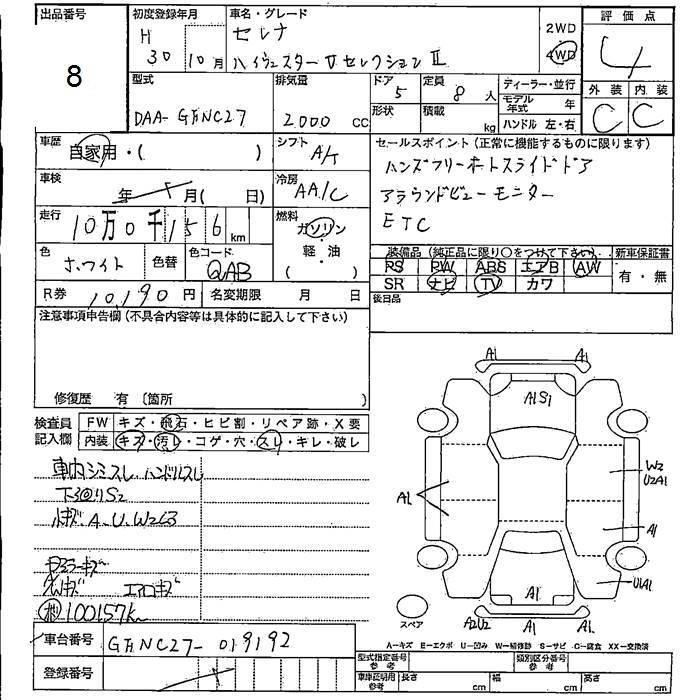 出品番号
8
初度登録年月
H
30 10月
車名・グレード
セレナ
ハイウェスター V セレクション II
2WD
4WD
評価点
4
外装 内装
C C
型式
DAA-GFNC27
排気量
2.000 CC
ドア
5
定員
8 人
形状
積載
kg
ディーラー・並行
モデル年式 年
ハンドル 左・右
車歴
自家用・( )
シフト
A/T
セールスポイント (正常に機能するものに限ります)
ハンズフリーオートスライドドア
アラウンドビューモニター
ETC
車検
年 月( 日)
冷房
AA/C
走行
10万0千156 km
燃料
ガソリン
・
軽・油
( )
色
ホワイト
色替
色コード
QAB
装備品 (純正品に限り〇をつけて下さい)
新車保証書
PS PW ABS エアB AW
SR ナビ TV カワ
有・無
R券
10,190 円
名変期限 月 日
後日品
注意事項申告欄 (不具合内容等は具体的に記入して下さい)
修復歴 有 〔箇所
検査員
記入欄
FW キズ・飛石・ヒビ割・リペア跡・X要
内装 キズ・汚レ・コゲ・穴・スレ・キレ・破レ
車内シミスレ ハンドルスレ
下廻りS2
小キズ A.U.W2E3
エアロキズ
100157km
A1 A1
A1S1
W2
U2A1
A1
A1
U1A1
A1
A2U2 A1 A1
スペア
A=キズ E=エクボ U=凹み W=補修跡 S=サビ C=腐食 XX=交換済
車台番号
GFNC27-019192
登録番号
型式指定番号
参考
類別区分番号
参考
車庫証明用
参考
長さ cm
幅 cm
高さ cm